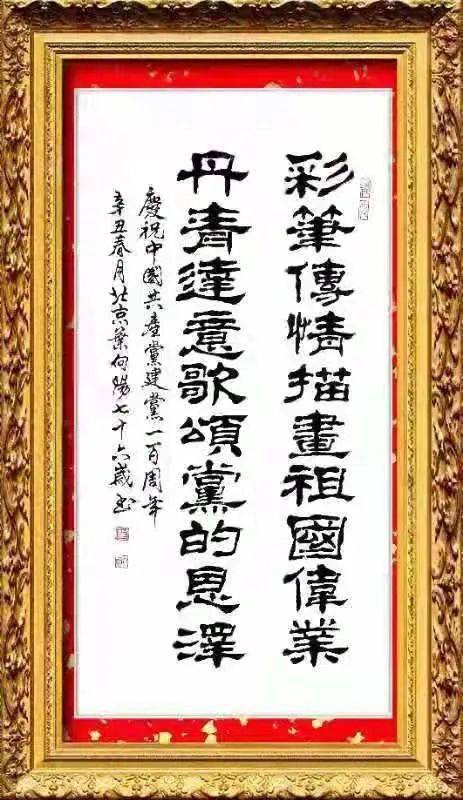 彩筆傳情描畫祖國偉業
丹青達意歌頌黨的恩澤
慶祝中國共產黨建黨一百周年
辛丑春月北京葉向陽七十六歲書